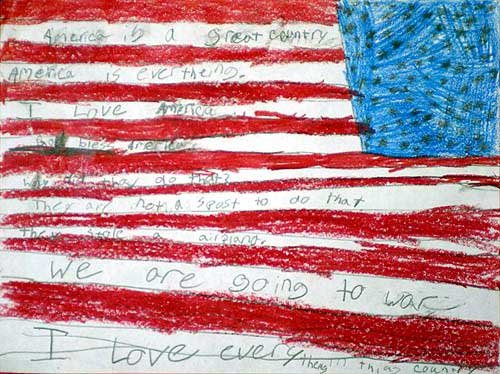 America is a Great country
America is evertheing.
I Love America
God bless America.
why did they do that?
They are not a spast to do that
they stole a airplane.
We are going to war
I Love every theng in thias country